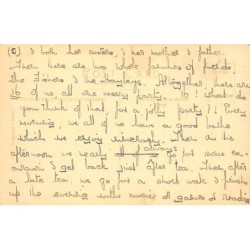 (6) & both her sisters, & her mother & father.
Then there are two whole families of
the & the Altogether there are
16 of us, all are merry party. So what do
you think of that for a jolly party!! Every
morning we all of us have a good bathe
which we enjoy Then in the
afternoon we nearly always go for some
& get back just after tea. Then after
a late tea we go for a short walk & finish
up the evening with music & games or reading